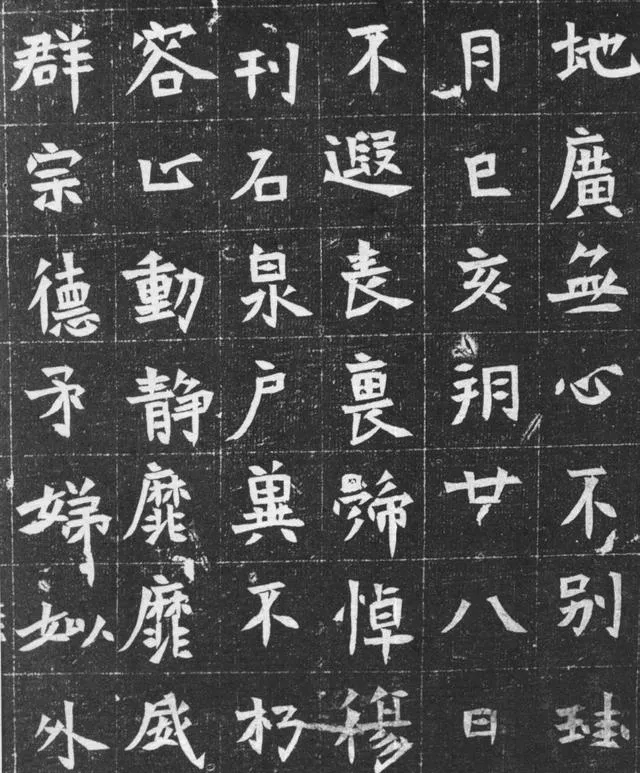 地廣無心不别珪
月己亥朔廿八日
不遐表裏啼悼穆
刊石泉户冀不朽
容止動静靡靡威
群宗德矛娣姒外